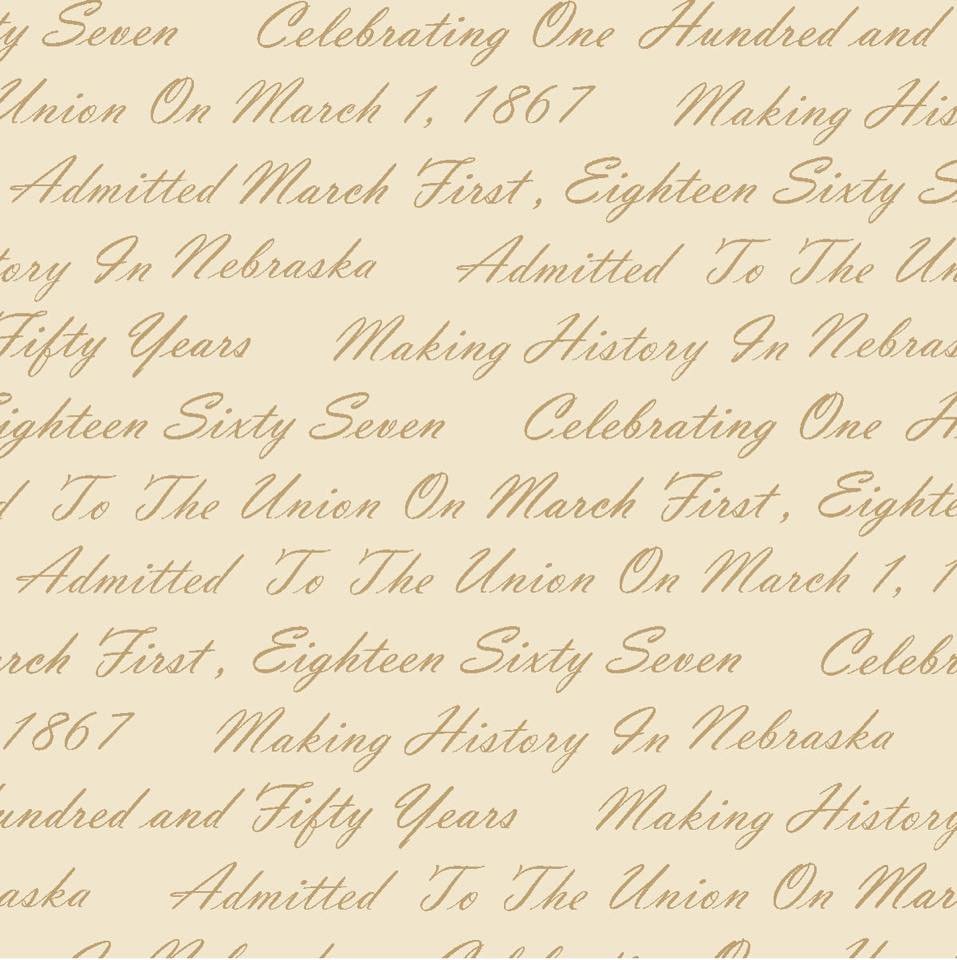 ty Seven Celebrating One Hundred and
Union On March 1, 1867 Making His
Admitted March First, Eighteen Sixty S
tory In Nebraska Admitted To The Un
Fifty Years Making History In Nebras
Eighteen Sixty Seven Celebrating One H
d To The Union On March First, Eighte
Admitted To The Union On March 1, 1
rch First, Eighteen Sixty Seven Celebr
1867 Making History In Nebraska
undred and Fifty Years Making History
aska Admitted To The Union On Mar